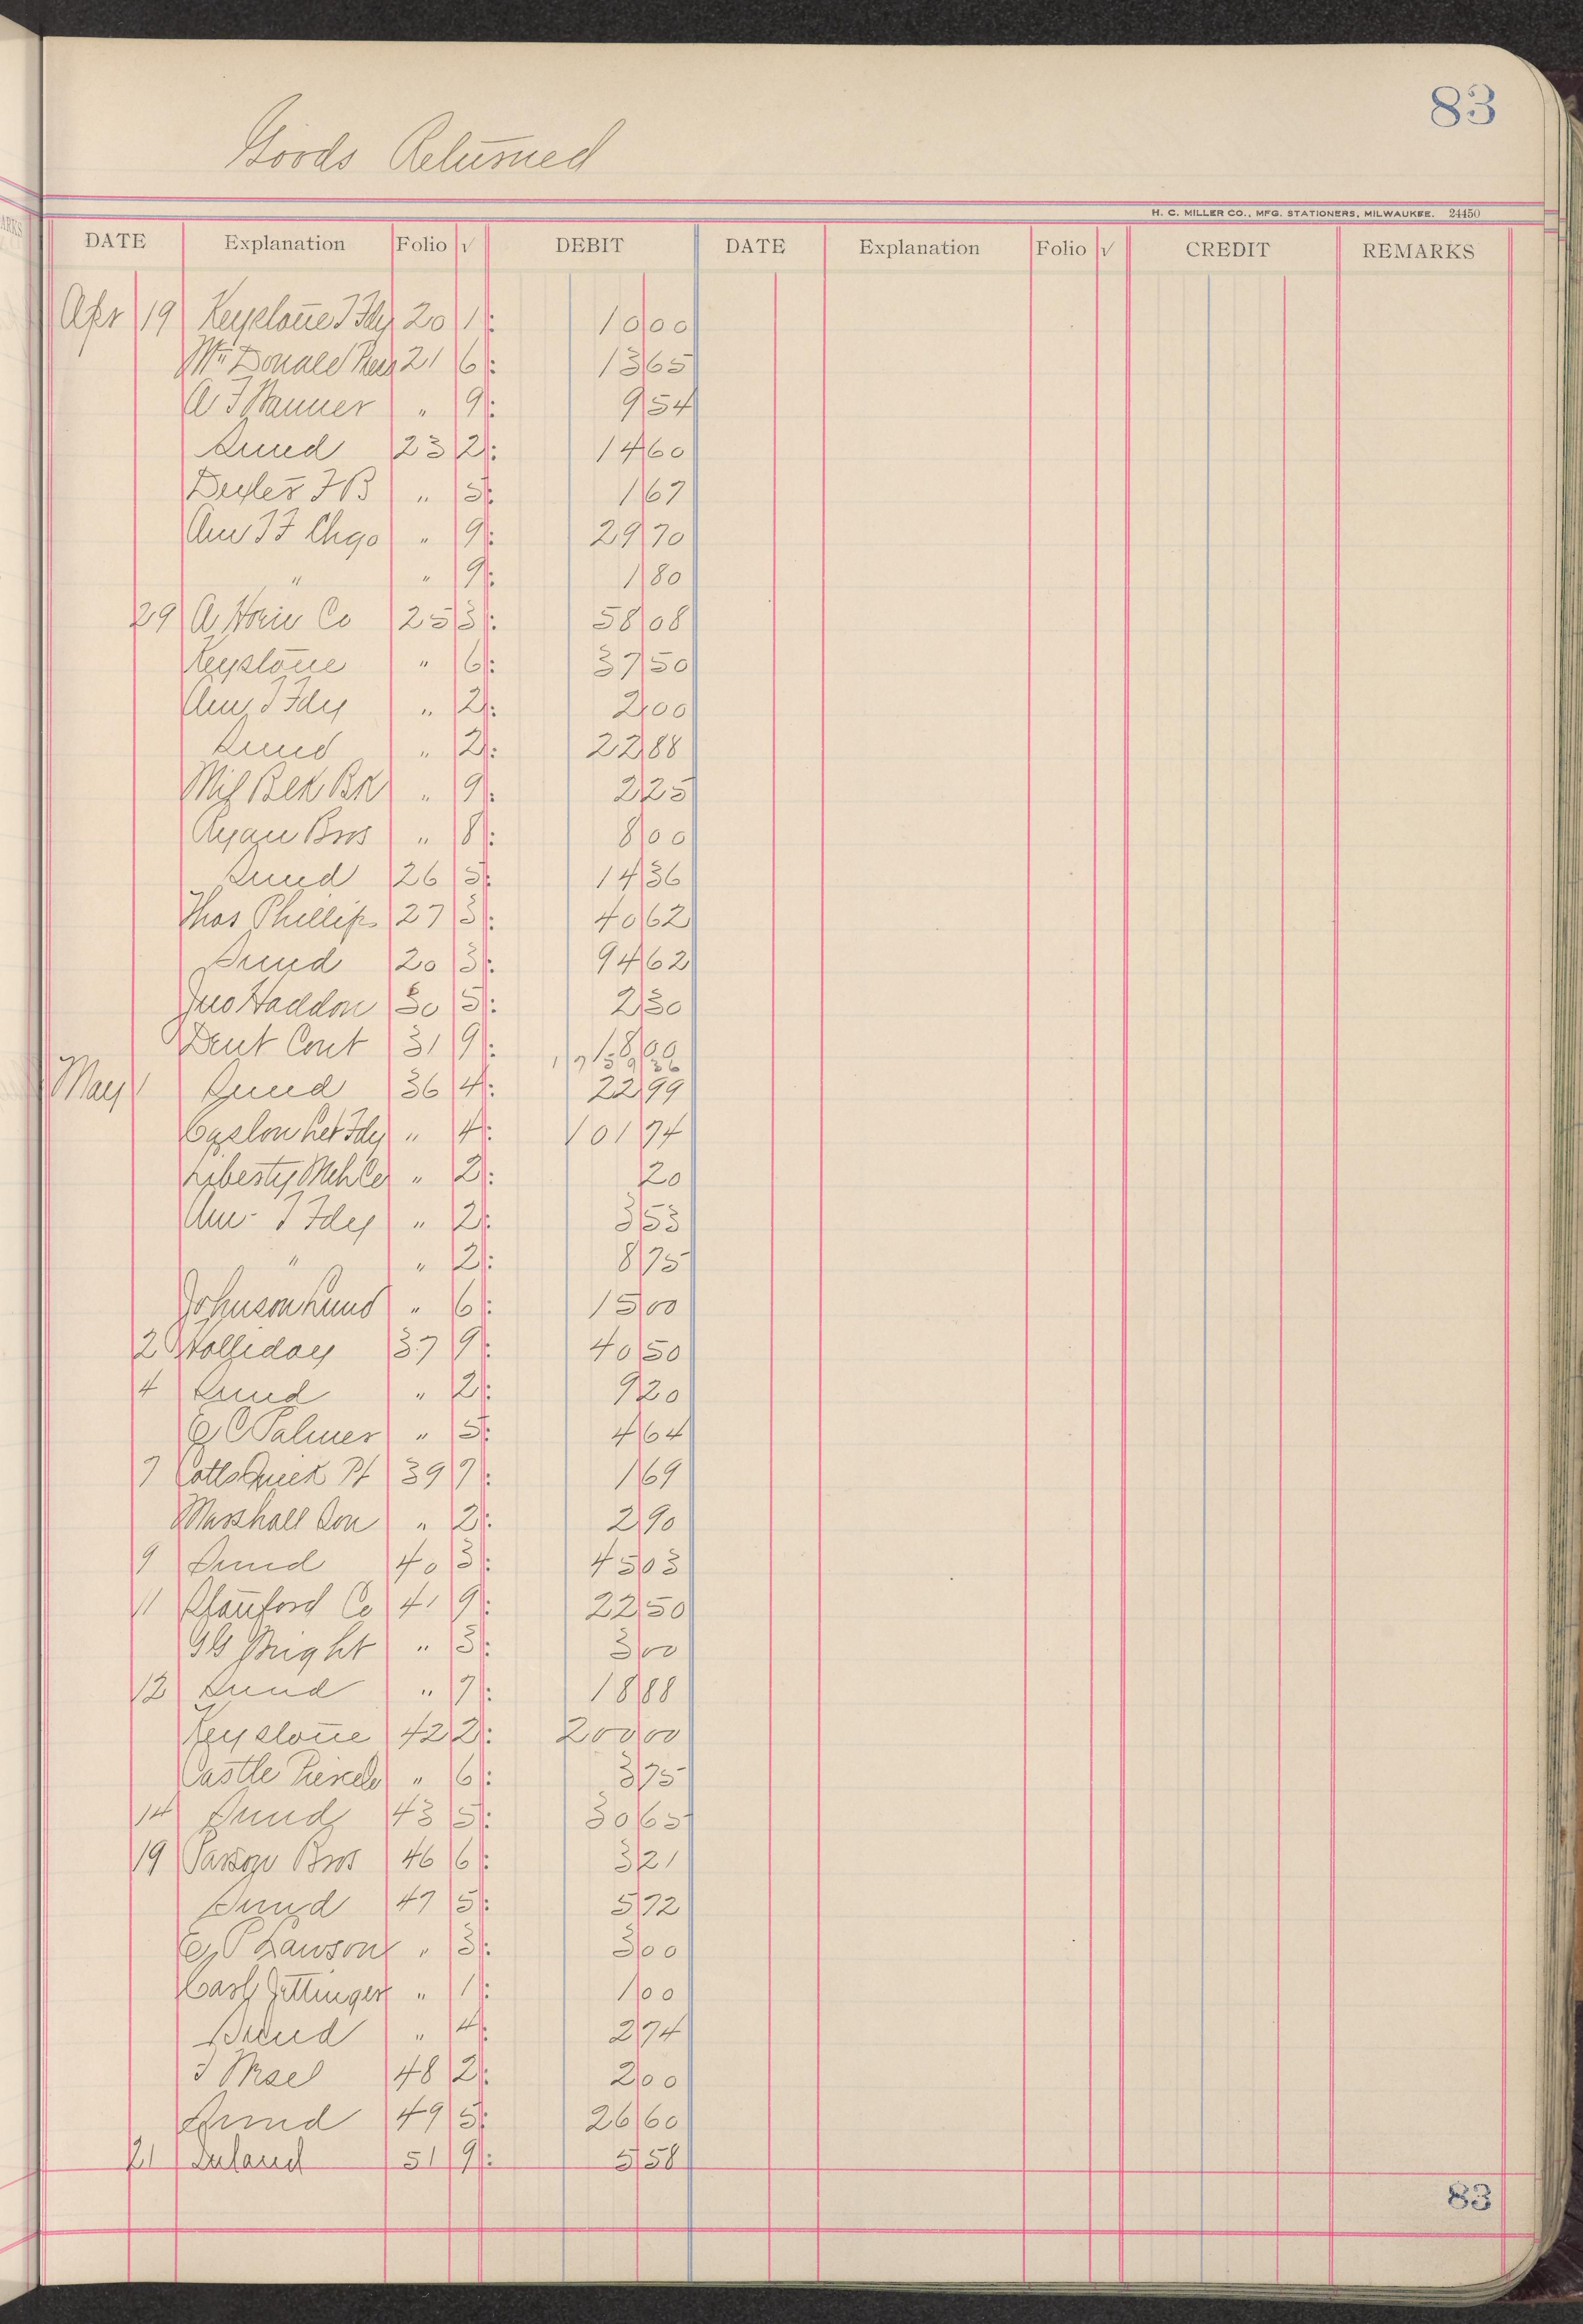 83
Goods Returned
H. C. MILLER CO., MFG. STATIONERS, MILWAUKEE. 24450
DATE Explanation Folio √ DEBIT DATE Explanation Folio √ CREDIT REMARKS
Apr 19 Keystone T Fdy 20 1 10 00
21 6 13 65
" 9 9 54
Sund 23 2 14 60
Dexter F B " 5 1 67
Am T F Chgo " 9 29 70
" " 9 1 80
29 A Co 25 3 58 08
Keystone " 6 37 50
Am T Fdy " 2 2 00
Sund " 2 22 88
" 9 2 25
Ryan Bros " 8 8 00
Sund 26 5 14 36
Thos Phillips 27 3 40 62
Sund 20 3 94 62
Jno Haddon 30 5 2 30
Dent Cont 31 9 18 00
May 1 Sund 36 4 22 99
Caslon Let Fdy " 4 101 74
Liberty " 2 20
Am T Fdy " 2 3 53
" " 2 8 75
Johnson " 6 15 00
2 Holliday 37 9 40 50
4 Sund " 2 9 20
E C Palmer " 5 4 64
7 39 7 1 69
Marshall Son " 2 2 90
9 Sund 40 3 45 03
11 Stanford Co 41 9 22 50
" 3 3 00
13 Sund " 7 18 88
Keystone 42 2 200 00
Castle " 6 3 75
14 Sund 43 5 30 65
19 Bros 46 6 3 21
Sund 47 5 5 72
Lawson " 3 3 00
Gettinger " 1 1 00
Sund " 4 2 74
48 2 2 00
Sund 49 5 26 60
21 Inland 51 9 5 58
83